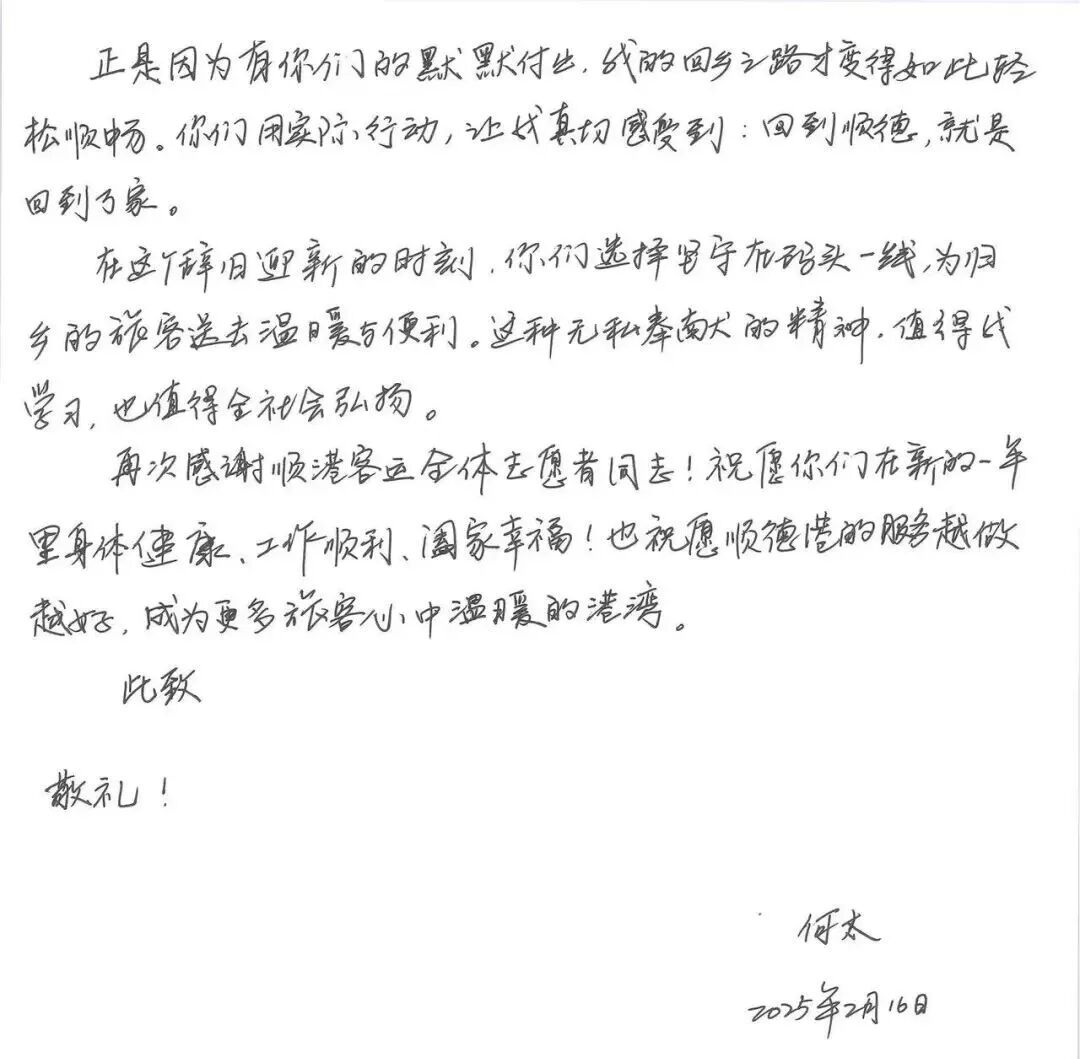 正是因为有你们的默默付出，我的回乡之路才变得如此轻
松顺畅。你们用实际行动，让我真切感受到：回到顺德，就是
回到了家。
在这个辞旧迎新的时刻，你们选择坚守在码头一线，为归
乡的旅客送去温暖与便利。这种无私奉献的精神，值得我
学习，也值得全社会弘扬。
再次感谢顺港客运全体志愿者同志！祝愿你们在新的一年
里身体健康、工作顺利、阖家幸福！也祝愿顺德港的服务越做
越好，成为更多旅客心中温暖的港湾。
此致
敬礼！
何太
2025年2月16日